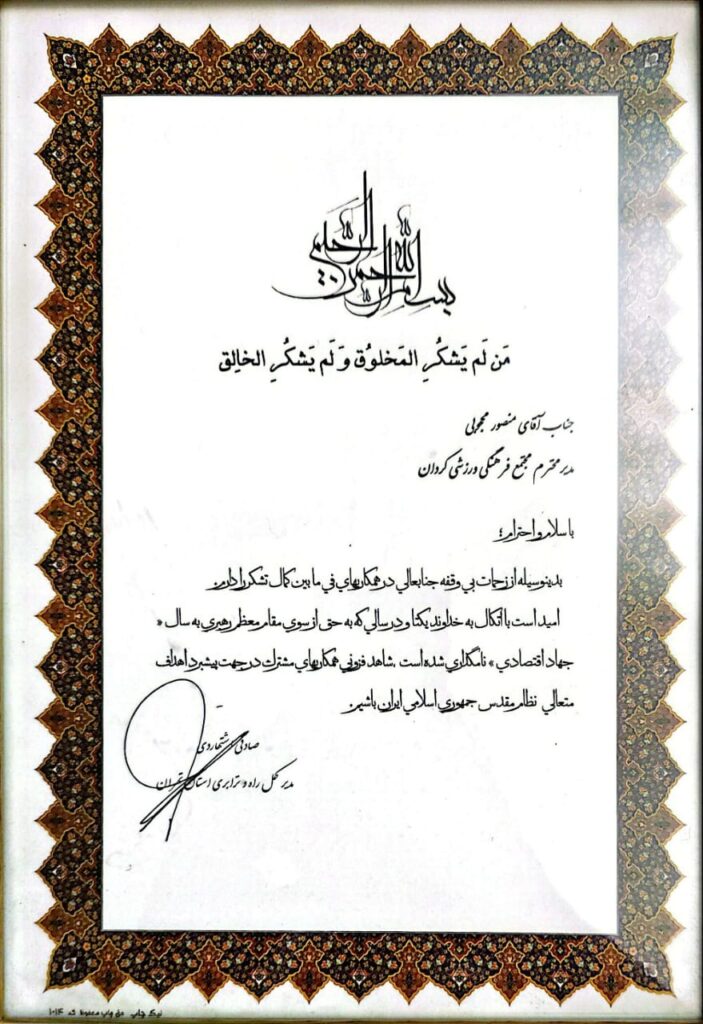 بسم الله الرحمن الرحیم
مَن لَم يَشكُرِ المَخلوُق وَ لَم يَشكُرِ الخالِق
جناب آقای منصور محجوبی
مدیر محترم مجتمع فرهنگی ورزشی کردان
با سلام و احترام؛
بدينوسيله از زحمات بي وقفه جنابعالي در همكاريهاي في ما بين كمال تشكر را دارم.
اميد است با اتكال به خداوند يكتا و در سالي كه به حق از سوي مقام معظم رهبري به سال «
جهاد اقتصادي » نامگذاري شده است ،شاهد فزوني همكاريهاي مشترك در جهت پيشبرد اهداف
متعالي نظام مقدس جمهوري اسلامي ايران باشيم.
صادق
مدیر کل راه و ترابری استان تهران
نیک چاپ حق چاپ محفوظ ۱۰۱۴